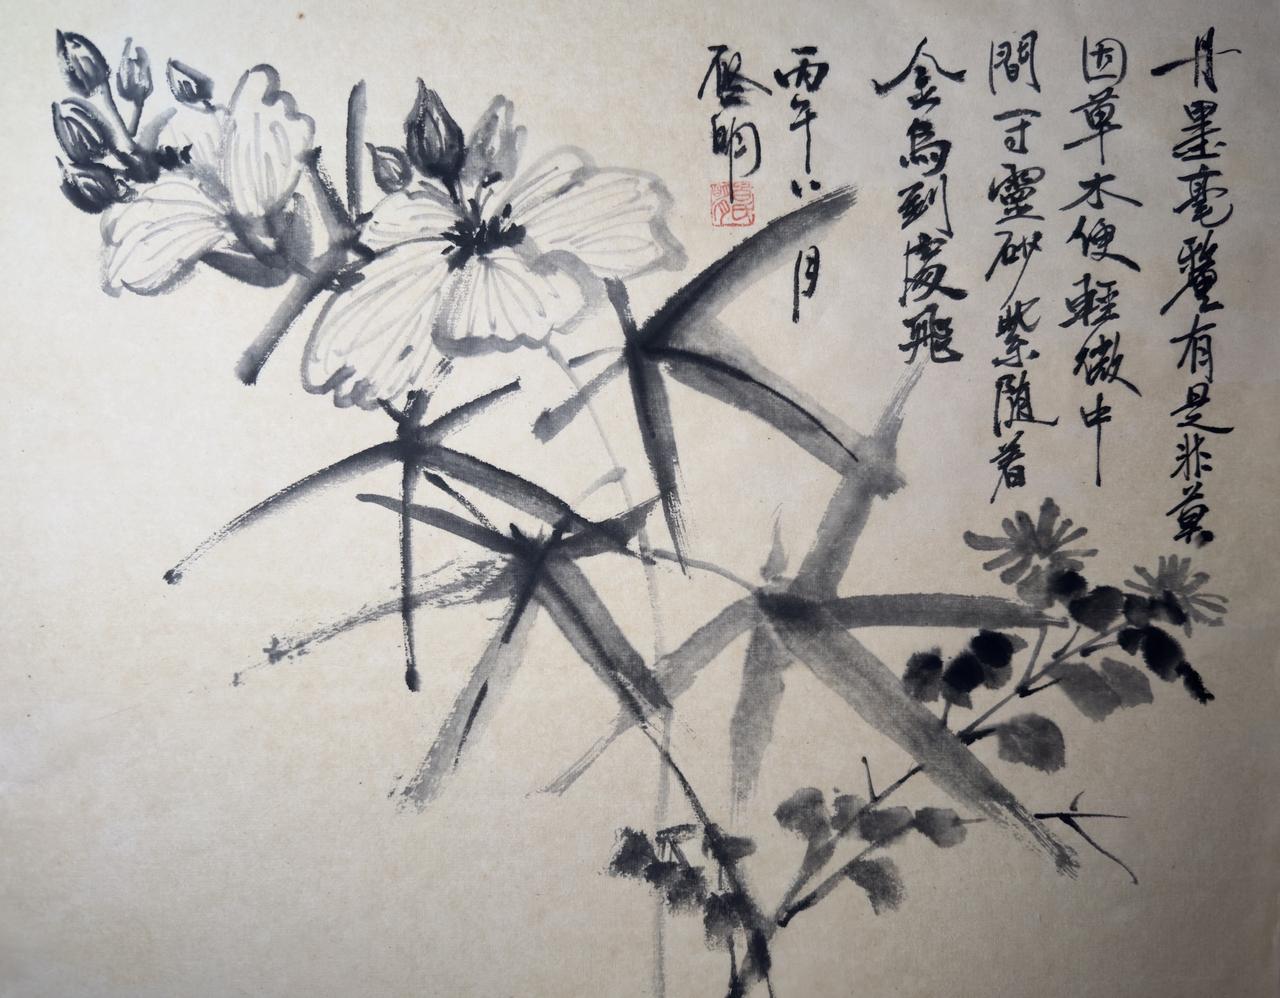 丹墨毫釐有是非莫
因草木便輕微中
間一寸靈砂紫隨着
金烏到處飛
丙午月